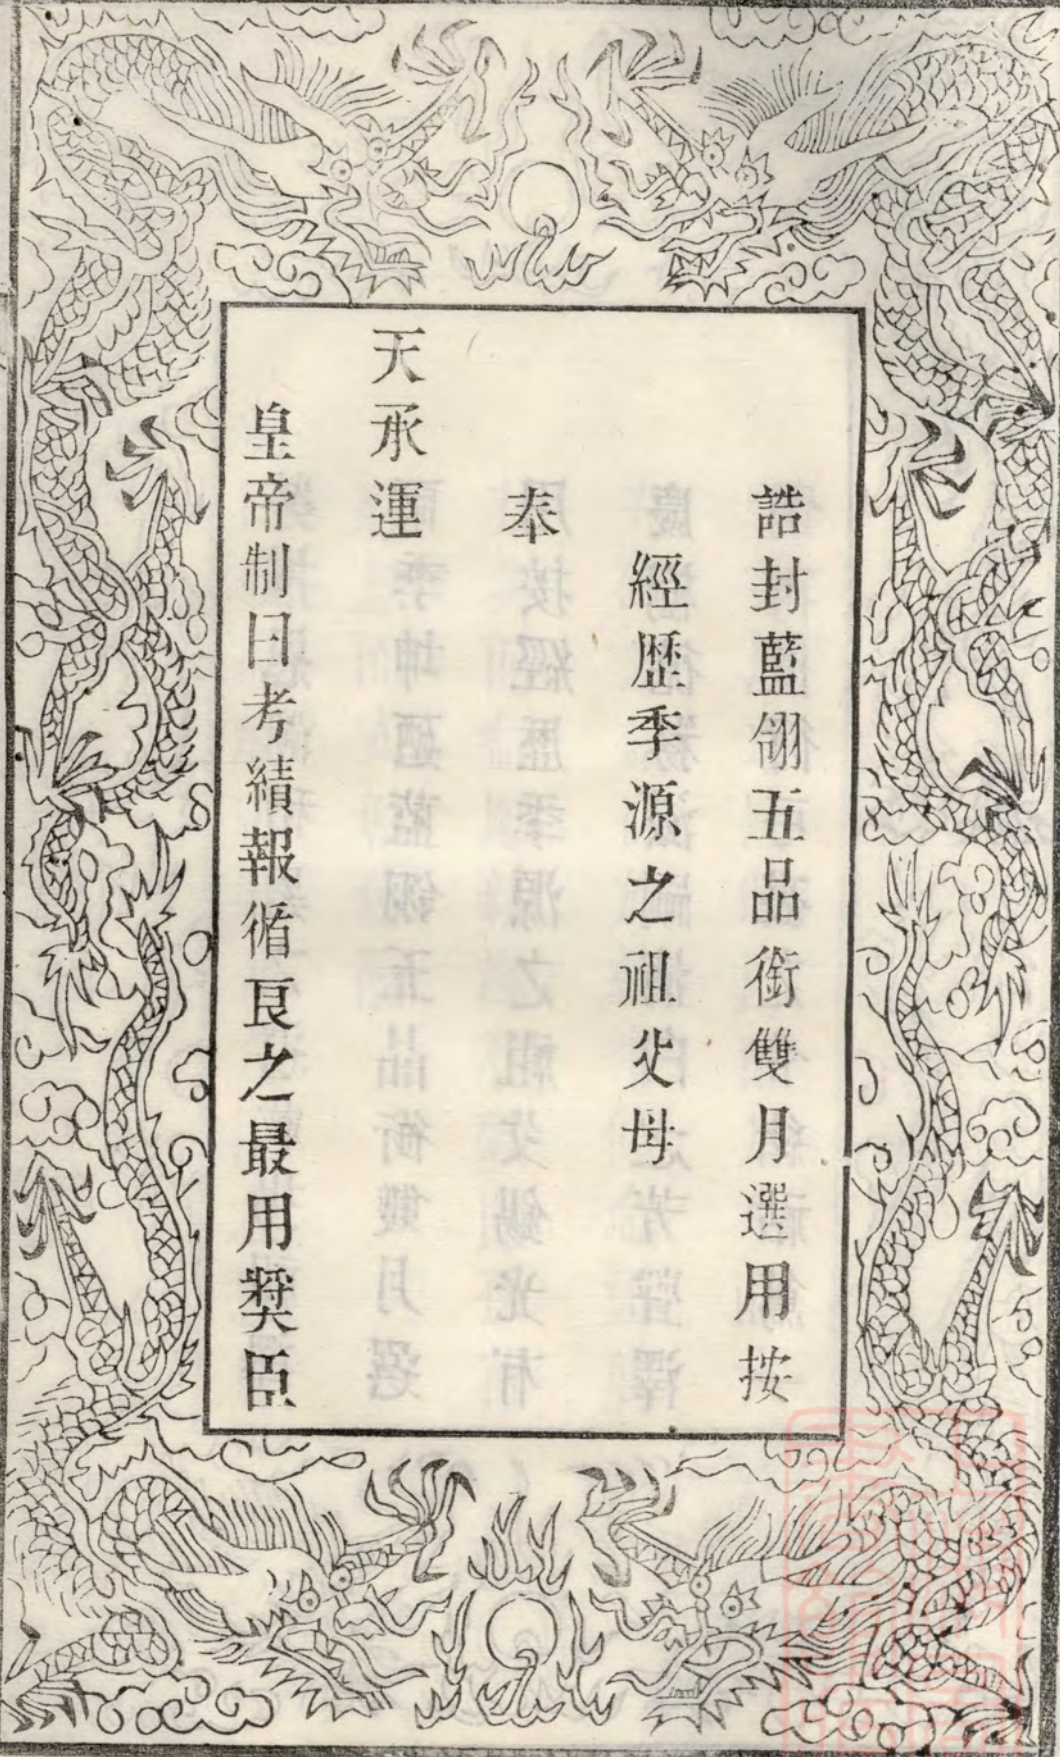 誥封藍翎五品銜雙月選用按
經歷季源之祖父母
奉
天承運
皇帝制曰考績報循良之最用奬臣